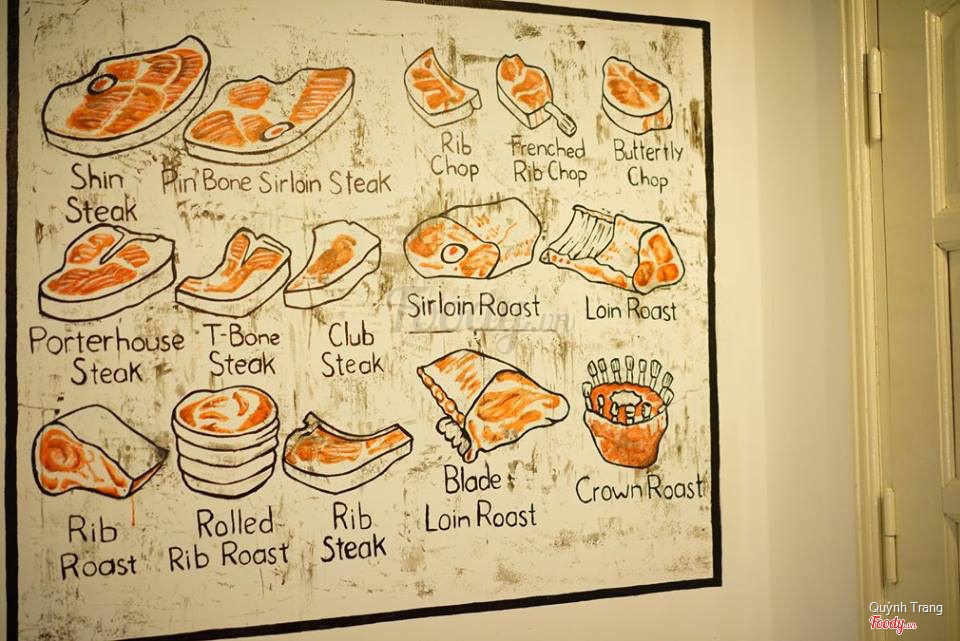 Shin
Steak
Pin Bone Sirloin Steak
Rib
Chop
Frenched
Rib Chop
Butterfly
Chop
Porterhouse
Steak
T-Bone
Steak
Club
Steak
Sirloin Roast
Loin Roast
Rib
Roast
Rolled
Rib Roast
Rib
Steak
Blade
Loin Roast
Crown Roast
Foody.vn
Quỳnh Trang
Foody.vn